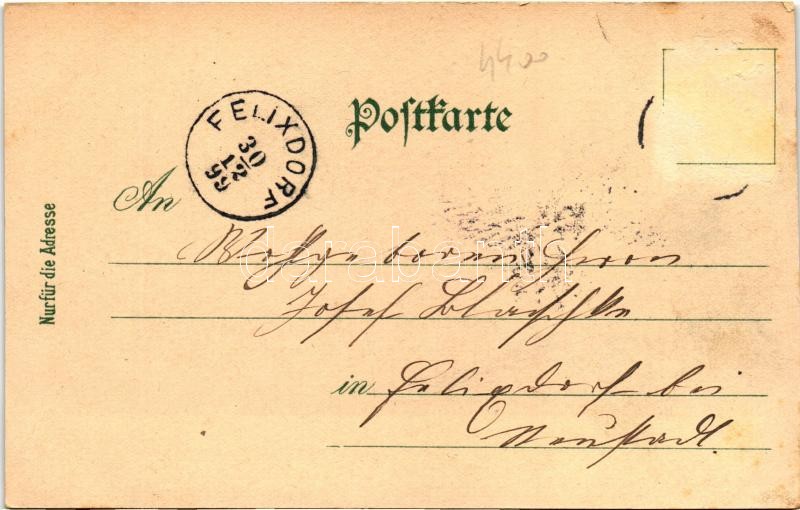 4400
Postkarte
FELIXDORF
30
12
99
An
Wohlgeboren Herrn
Josef Blaschke
in Felixdorf bei
Neustadt
Nur für die Adresse
darabanth